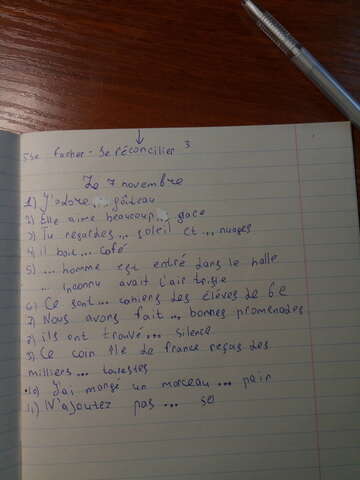 se facher - se réconcilier 3
Le 7 novembre
1) J'adore ... gâteau
2) Elle aime beaucoup ... glace
3) Tu regardes ... soleil et ... nuages
4) il boit ... café
5) ... homme est entré dans le halle
... inconnu avait l'air triste
6) Ce sont ... cahiers des élèves de 6e
7) Nous avons fait ... bonnes promenades
8) ils ont trouvé ... silence
9) Ce coin Ile de france reçus des
milliers ... touristes
10) J'ai mangé un morceau ... pain
11) N'ajoutez pas ... sel